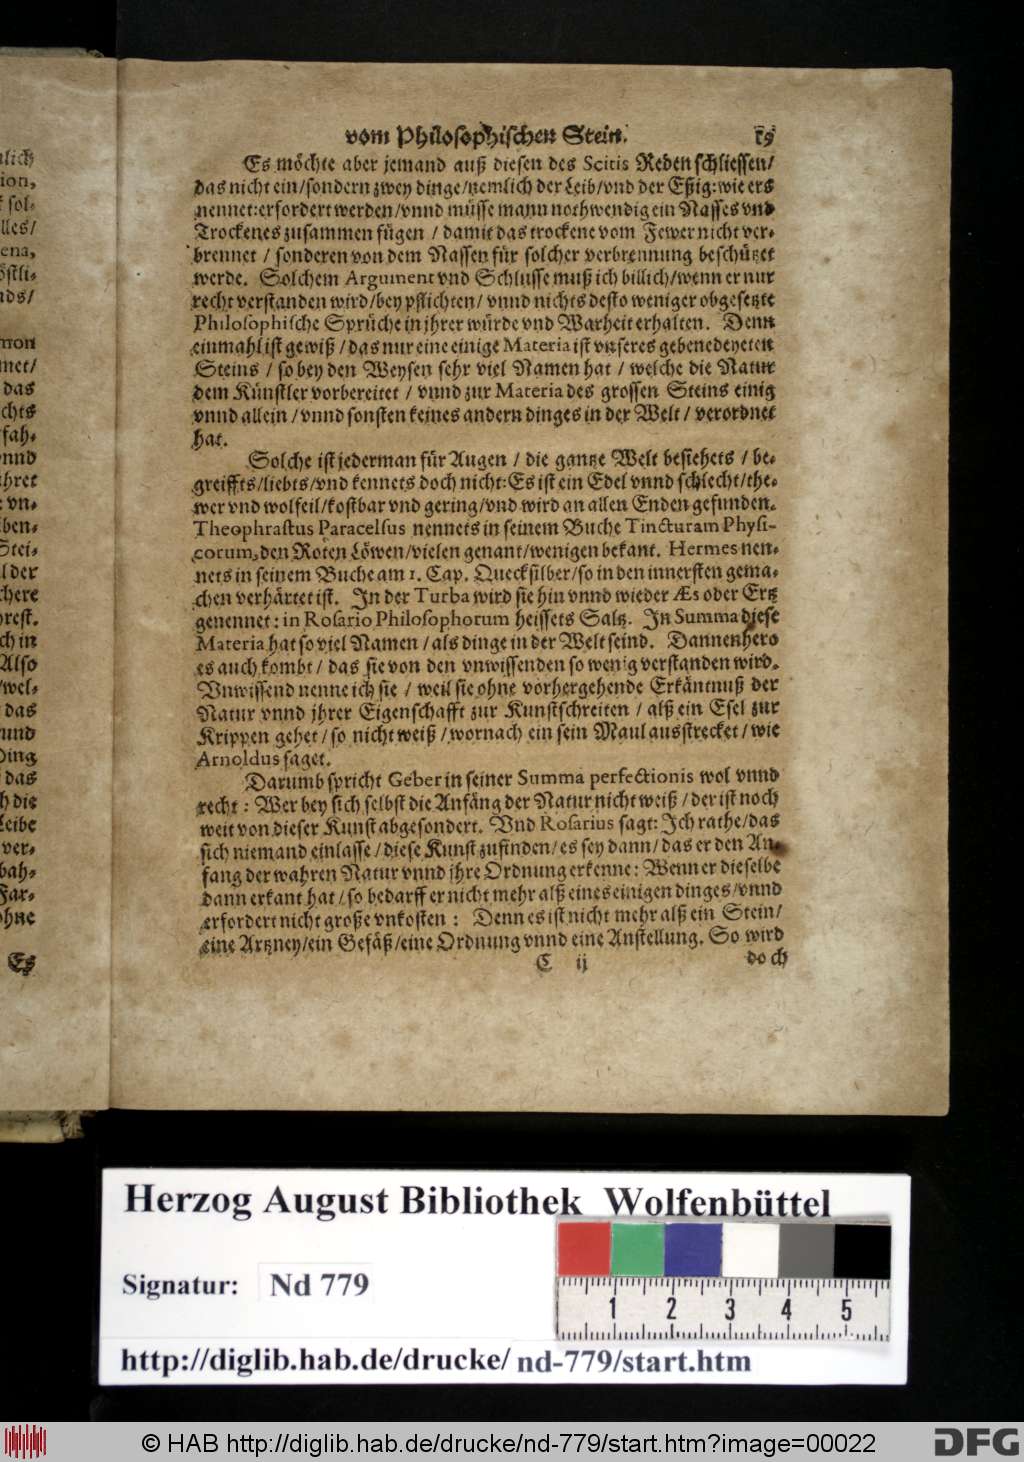 vom Philosophischen Stein. 19
Es möchte aber jemand auß diesen des Scitis Reden schliessen/
das nicht ein/sondern zwey dinge/nemlich der Leib/vnd der Eßig: wie ers
nennet: erfordert werden/vnnd müsse mann nothwendig ein Nasses vnd
Trockenes zusammen fügen / damit das trockene vom Fewer nicht ver-
brennet / sonderen von dem Nassen für solcher verbrennung beschützet
werde. Solchem Argument vnd Schlusse muß ich billich/wenn er nur
recht verstanden wird/bey pflichten/ vnnd nichts desto weniger obgesetzte
Philosophische Sprüche in jhrer würde vnd Warheit erhalten. Denn
einmahl ist gewiß / das nur eine einige Materia ist vnseres gebenedeyeten
Steins / so bey den Weysen sehr viel Namen hat / welche die Natur
dem Künstler vorbereitet / vnnd zur Materia des grossen Steins einig
vnnd allein / vnnd sonsten keines andern dinges in der Welt / verordnet
hat.
Solche ist jederman für Augen / die gantze Welt besiehets / be-
greiffts/liebts/vnd kennets doch nicht: Es ist ein Edel vnnd schlecht/the-
wer vnd wolfeil/kostbar vnd gering/vnd wird an allen Enden gefunden.
Theophrastus Paracelsus nennets in seinem Buche Tincturam Physi-
corum, den Roten Löwen/vielen genant/wenigen bekant. Hermes nen-
nets in seinem Buche am 1. Cap. Quecksilber/so in den innersten gema-
chen verhärtet ist. In der Turba wird sie hin vnnd wieder Æs oder Ertz
genennet: in Rosario Philosophorum heissets Saltz. In Summa diese
Materia hat so viel Namen / als dinge in der Welt seind. Dannenhero
es auch kombt / das sie von den vnwissenden so wenig verstanden wird.
Vnwissend nenne ich sie / weil sie ohne vorhergehende Erkäntnuß der
Natur vnnd jhrer Eigenschafft zur Kunst schreiten / alß ein Esel zur
Krippen gehet / so nicht weiß / wornach ein sein Maul ausstrecket / wie
Arnoldus saget.
Darumb spricht Geber in seiner Summa perfectionis wol vnnd
recht: Wer bey sich selbst die Anfäng der Natur nicht weiß / der ist noch
weit von dieser Kunst abgesondert. Vnd Rosarius sagt: Ich rathe/das
sich niemand einlasse / diese Kunst zufinden/ es sey dann / das er den An-
fang der wahren Natur vnnd jhre Ordnung erkenne: Wenn er dieselbe
dann erkant hat / so bedarff er nicht mehr alß eines einigen dinges/vnnd
erfordert nicht große vnkosten: Denn es ist nicht mehr alß ein Stein/
eine Artzney/ein Gefäß/eine Ordnung vnnd eine Anstellung. So wird
C ij doch
Es
Herzog August Bibliothek Wolfenbüttel
Signatur: Nd 779
1 2 3 4 5
http://diglib.hab.de/drucke/ nd-779/start.htm
© HAB http://diglib.hab.de/drucke/nd-779/start.htm?image=00022
DFG